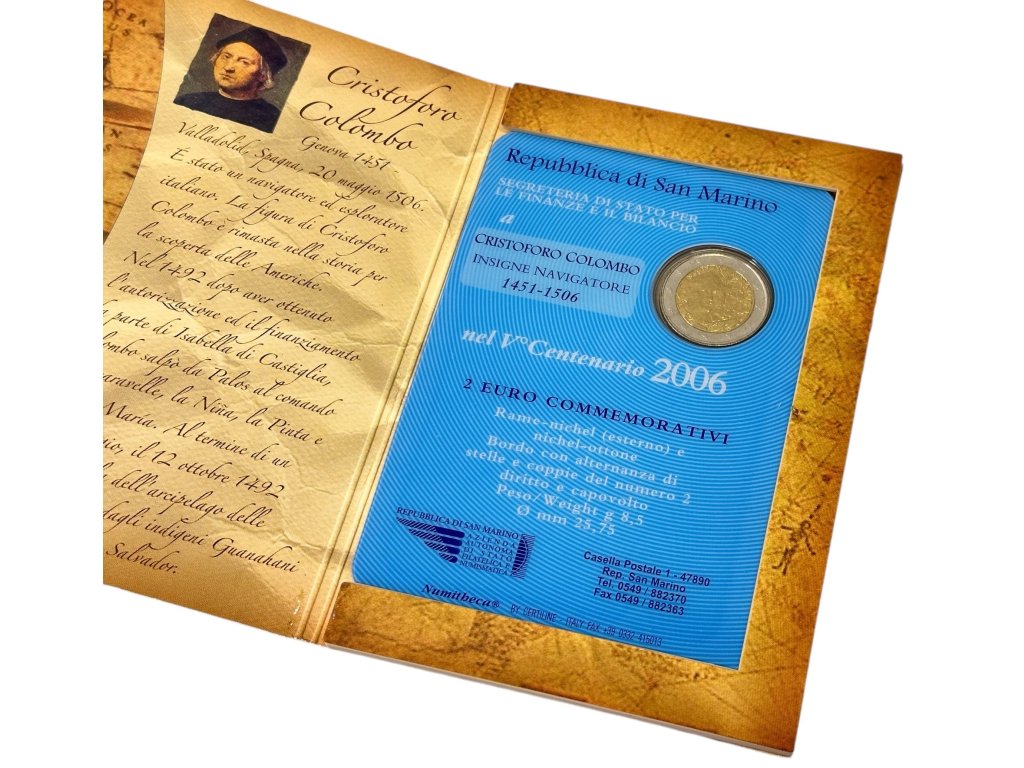 OCEA
Cristoforo
Colombo
Genova 1451 -
Valladolid, Spagna, 20 maggio 1506.
È stato un navigatore ed esploratore
italiano. La figura di Cristoforo
Colombo è rimasta nella storia per
la scoperta delle Americhe.
Nel 1492 dopo aver ottenuto
l'autorizzazione ed il finanziamento
parte di Isabella di Castiglia,
ombo salpò da Palos al comando
aravelle, la Niña, la Pinta e
María. Al termine di un
io, il 12 ottobre 1492
dell'arcipelago delle
dagli indigeni Guanahani
Salvador.
Repubblica di San Marino
SEGRETERIA DI STATO PER
LE FINANZE E IL BILANCIO
a
CRISTOFORO COLOMBO
INSIGNE NAVIGATORE
1451-1506
nel V° Centenario 2006
2 EURO COMMEMORATIVI
Rame-nichel (esterno) e
nichel-ottone
Bordo con alternanza di
stelle e coppie del numero 2
diritto e capovolto
Peso/Weight g 8,5
Ø mm 25,75
REPUBBLICA DI SAN MARINO
AZIENDA
AUTONOMA
DI STATO
FILATELICA E
NUMISMATICA
Casella Postale 1 - 47890
Rep. San Marino
Tel. 0549 / 882370
Fax 0549 / 882363
Numitheca®
BY CERTILINE - ITALY FAX +39 0332 415013